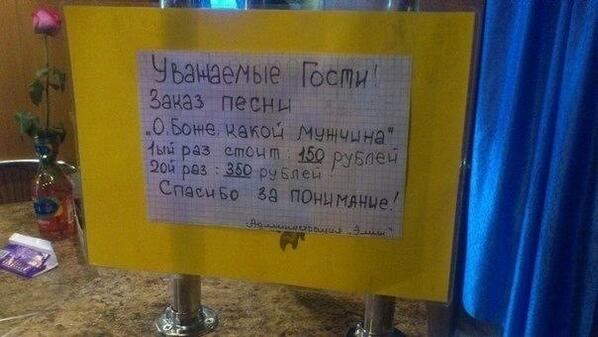 Уважаемые Гости!
Заказ песни
„О, Боже, какой мужчина"
1ый раз стоит: 150 рублей
2ой раз: 350 рублей
Спасибо за понимание!
Администрация „Элиш"